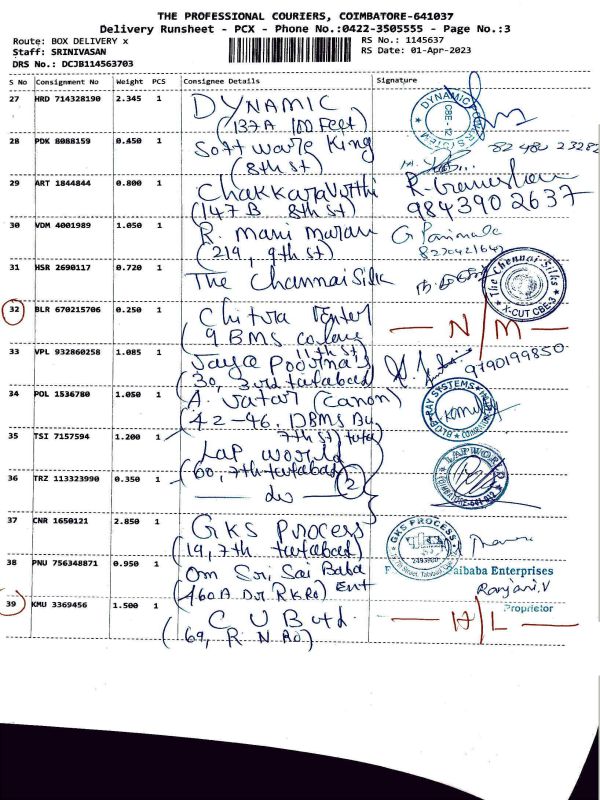 THE PROFESSIONAL COURIERS, COIMBATORE-641037
Delivery Runsheet - PCX - Phone No.:0422-3505555 - Page No.:3
Route: BOX DELIVERY x
RS No.: 1145637
Staff: SRINIVASAN
RS Date: 01-Apr-2023
DRS No.: DCJB114563703
S No Consignment No Weight PCS Consignee Details Signature
27 HRD 714328190 2.345 1 DYNAMIC
(137A 100 Feet)
DYNAMIC SYSTEM CBE-12
28 PDK 8088159 0.450 1 Software King
(8th st)
82 480 23282
29 ART 1844844 0.800 1 Chakkaravirthi
(147 B 8th st)
9843902637
30 VDM 4001989 1.050 1 R. Mani Maran
(219, 9th st)
G Parimala
8220421642
31 HSR 2690117 0.720 1 The Channai Silk
The Chennai Silks
X-CUT CBE-3
32 BLR 670215706 0.250 1 Chitra
9 BMS
11th st
N/M
33 VPL 932860258 1.085 1 Jaya Poorna's
(30, 3rd tatabad
9790199850
34 POL 1536780 1.050 1 A. (Canon)
(42-46, DBMS Bu.
7th st) tata
SYSTEMS
35 TSI 7157594 1.200 1 Lap world
(60, 7th tatabad)
LAPWORLD
COIMBATORE-641 012
36 TRZ 113323990 0.350 1 (2)
do
37 CNR 1650121 2.850 1 GKS Process
(19, 7th tatabad)
GKS PROCESS
38 PNU 756348871 0.950 1 Om Sri Sai Baba
(460 A. Dr RK Ro) Ent
Saibaba Enterprises
Ranjani.V
Proprietor
39 KMU 3369456 1.500 1 C U B Ltd.
(69, R. N. Ro)
H/L